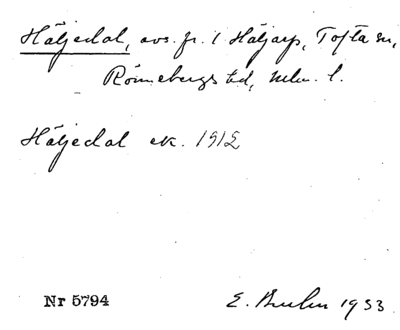 Häljedal, avs. fr. 1 Häljarp, Tofta sn,
Rönnebergs hd, Mlm. l.
Häljedal ek. 1912
Nr 5794
E. Bruhn 1933